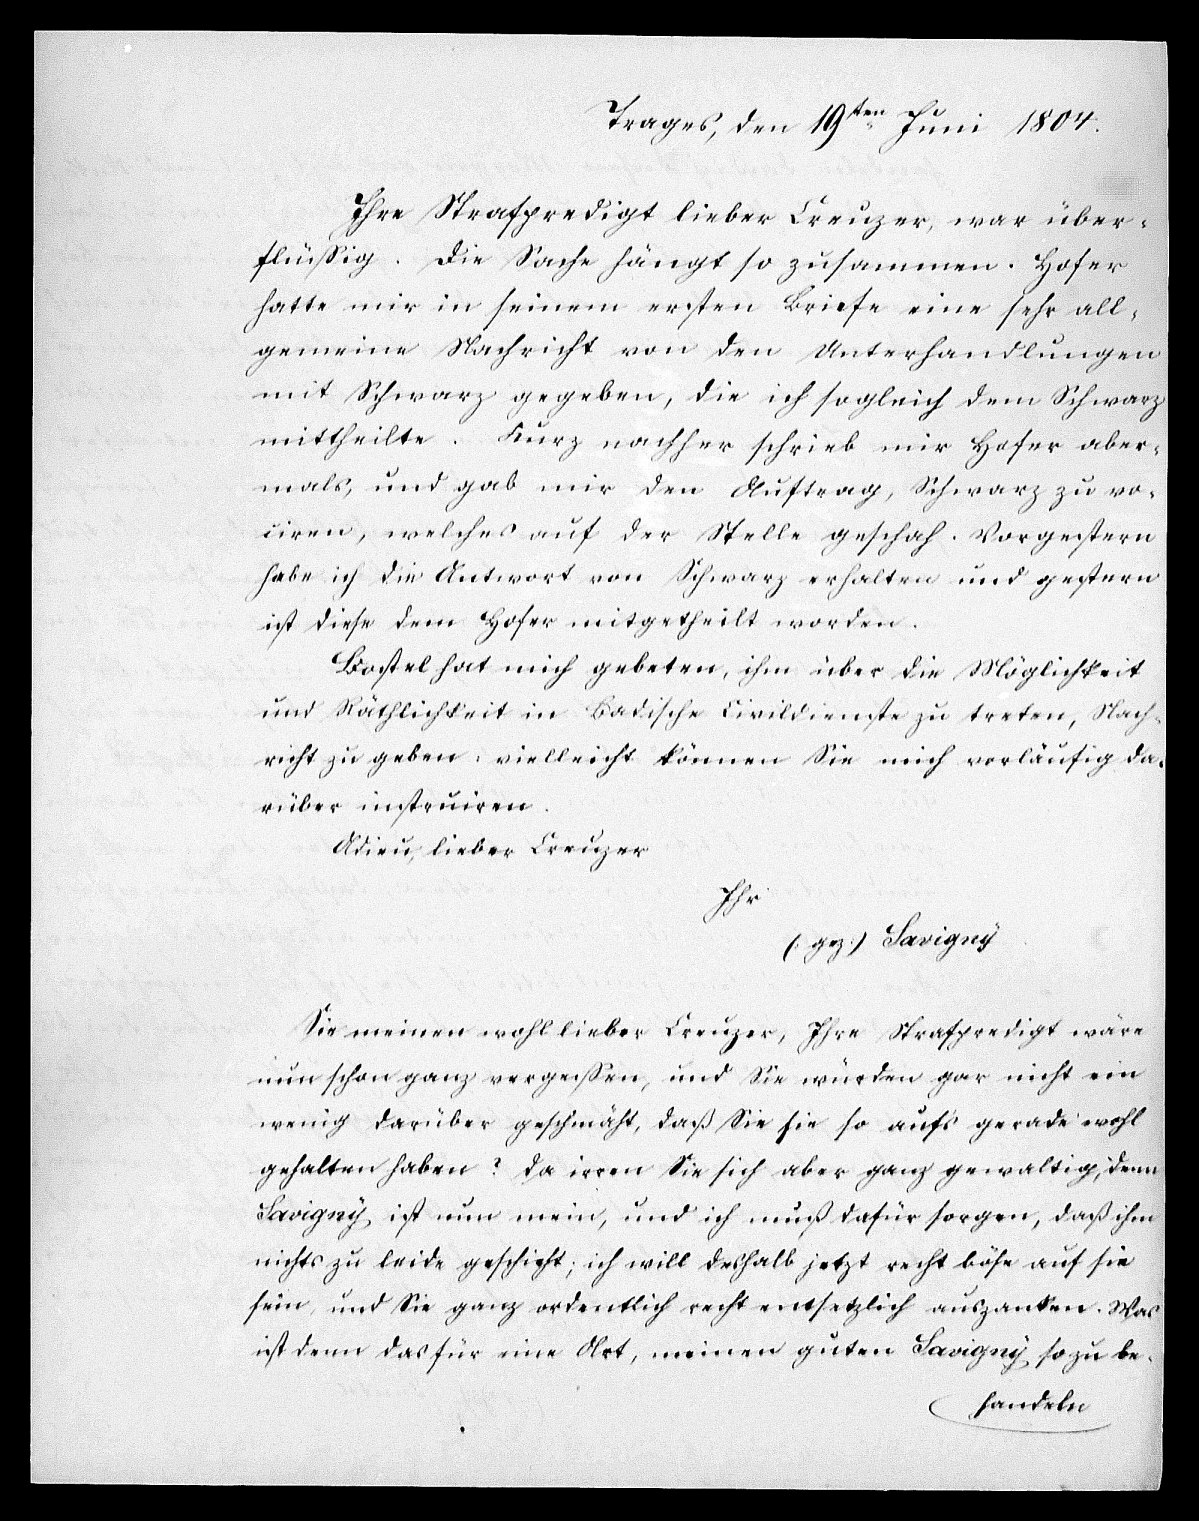 Trages, den 19ten Juni 1804.
Ihre Strafpredigt lieber Creuzer, war über-
flüssig. Die Sache hängt so zusammen. Hofer
hatte mir in seinem ersten Briefe eine sehr all-
gemeine Nachricht von den Unterhandlungen
mit Schwarz gegeben, die ich sogleich dem Schwarz
mittheilte. Kurz nachher schrieb mir Hofer aber-
mals, und gab mir den Auftrag, Schwarz zu vo-
ciren, welches auf der Stelle geschah. Vorgestern
habe ich die Antwort von Schwarz erhalten und gestern
ist diese dem Hofer mitgetheilt worden.
Bostel hat mich gebeten, ihm über die Möglichkeit
und Räthlichkeit in Badische Civildienste zu treten, Nach-
richt zu geben: vielleicht können Sie mich vorläufig da-
rüber instruiren.
Adieu, lieber Creuzer
Ihr
(: gez:) Savigny
Sie meinen wohl lieber Creuzer, Ihre Strafpredigt wäre
nun schon ganz vergessen, und Sie würden gar nicht ein
wenig darüber geschmäht, daß Sie sie so aufs gerade wohl
gehalten haben? da irren Sie sich aber ganz gewaltig, denn
Savigny ist nun mein, und ich muß dafür sorgen, daß ihm
nichts zu leide geschieht; ich will deshalb jetzt recht böse auf sie
sein, und Sie ganz ordentlich recht entsetzlich auszanken. Was
ist denn das für eine Art, meinen guten Savigny so zu be-
handeln